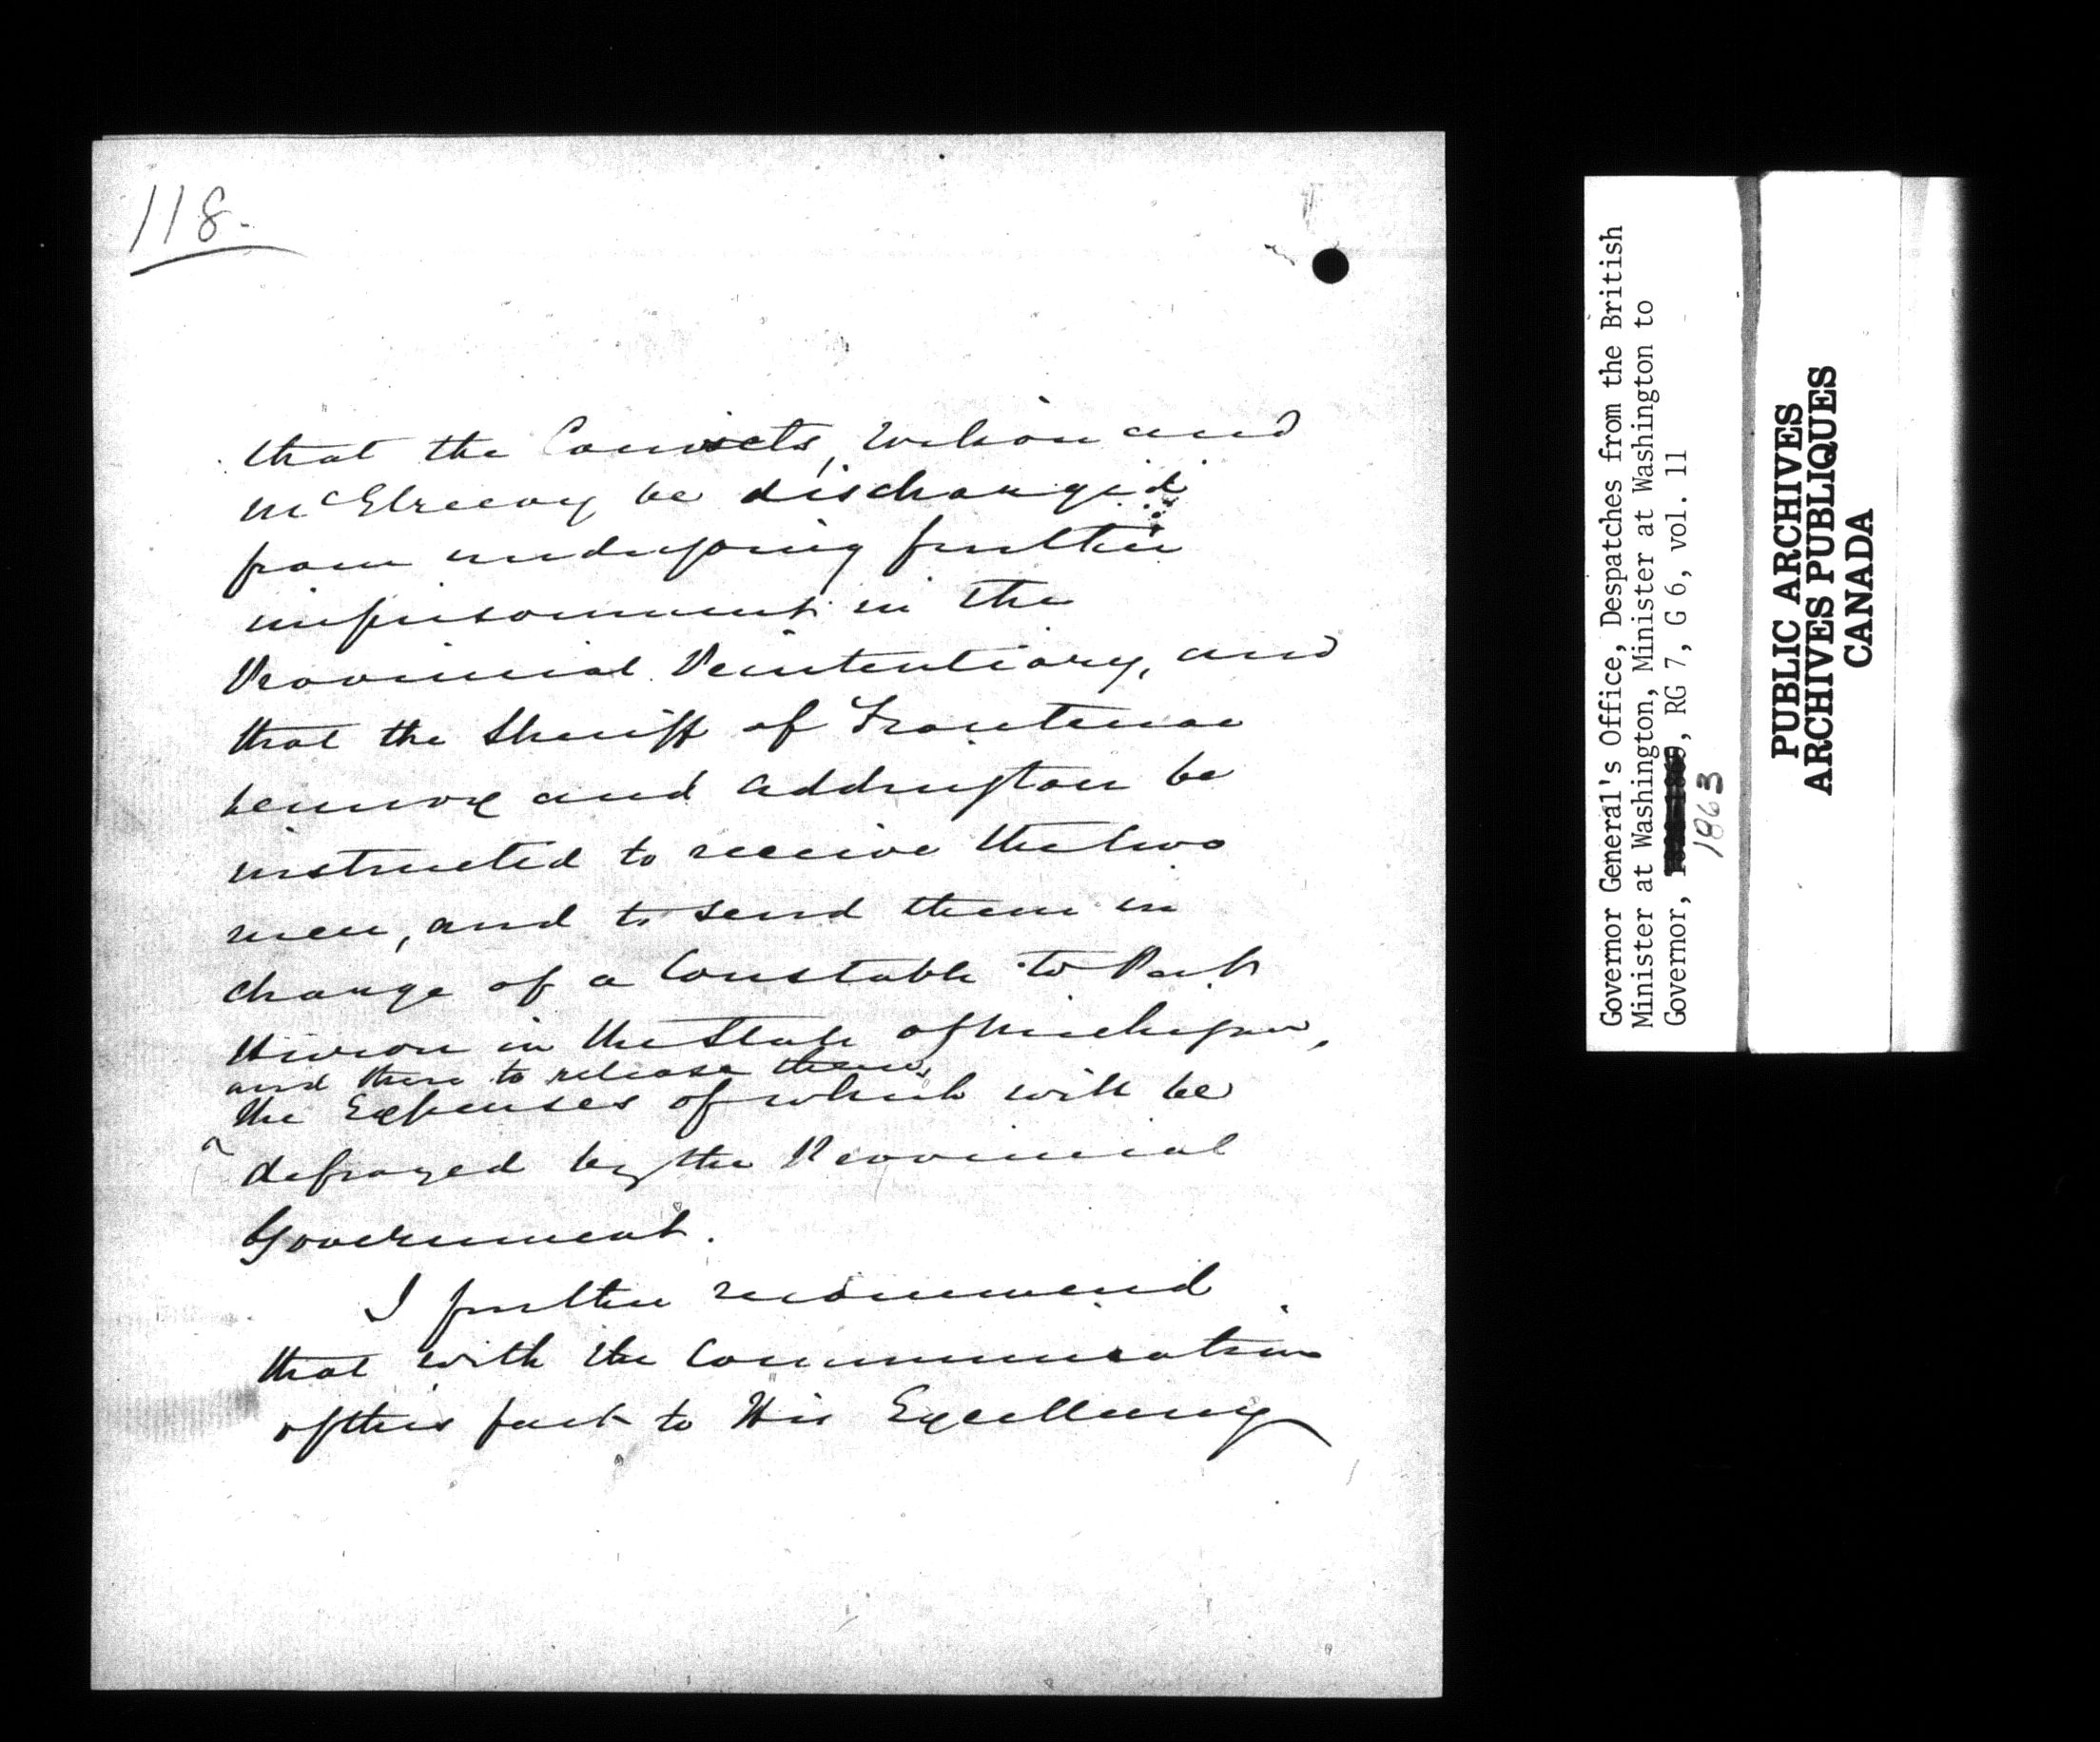 118.
that the Convicts, Wilson and
McElreevy be discharged
from undergoing further
imprisonment in the
Provincial Penitentiary, and
that the Sheriff of Frontenac
Lennox and Addington be
instructed to receive the two
men, and to send them in
charge of a Constable to Port
Huron in the State of Michigan,
and there to release them,
the Expenses of which will be
defrayed by the Provincial
Government.
I further recommend
that with the Communication
of this fact to His Excellency
Governor General's Office, Despatches from the British
Minister at Washington, Minister at Washington to
Governor, , RG 7, G 6, vol. 11
1863
PUBLIC ARCHIVES
ARCHIVES PUBLIQUES
CANADA